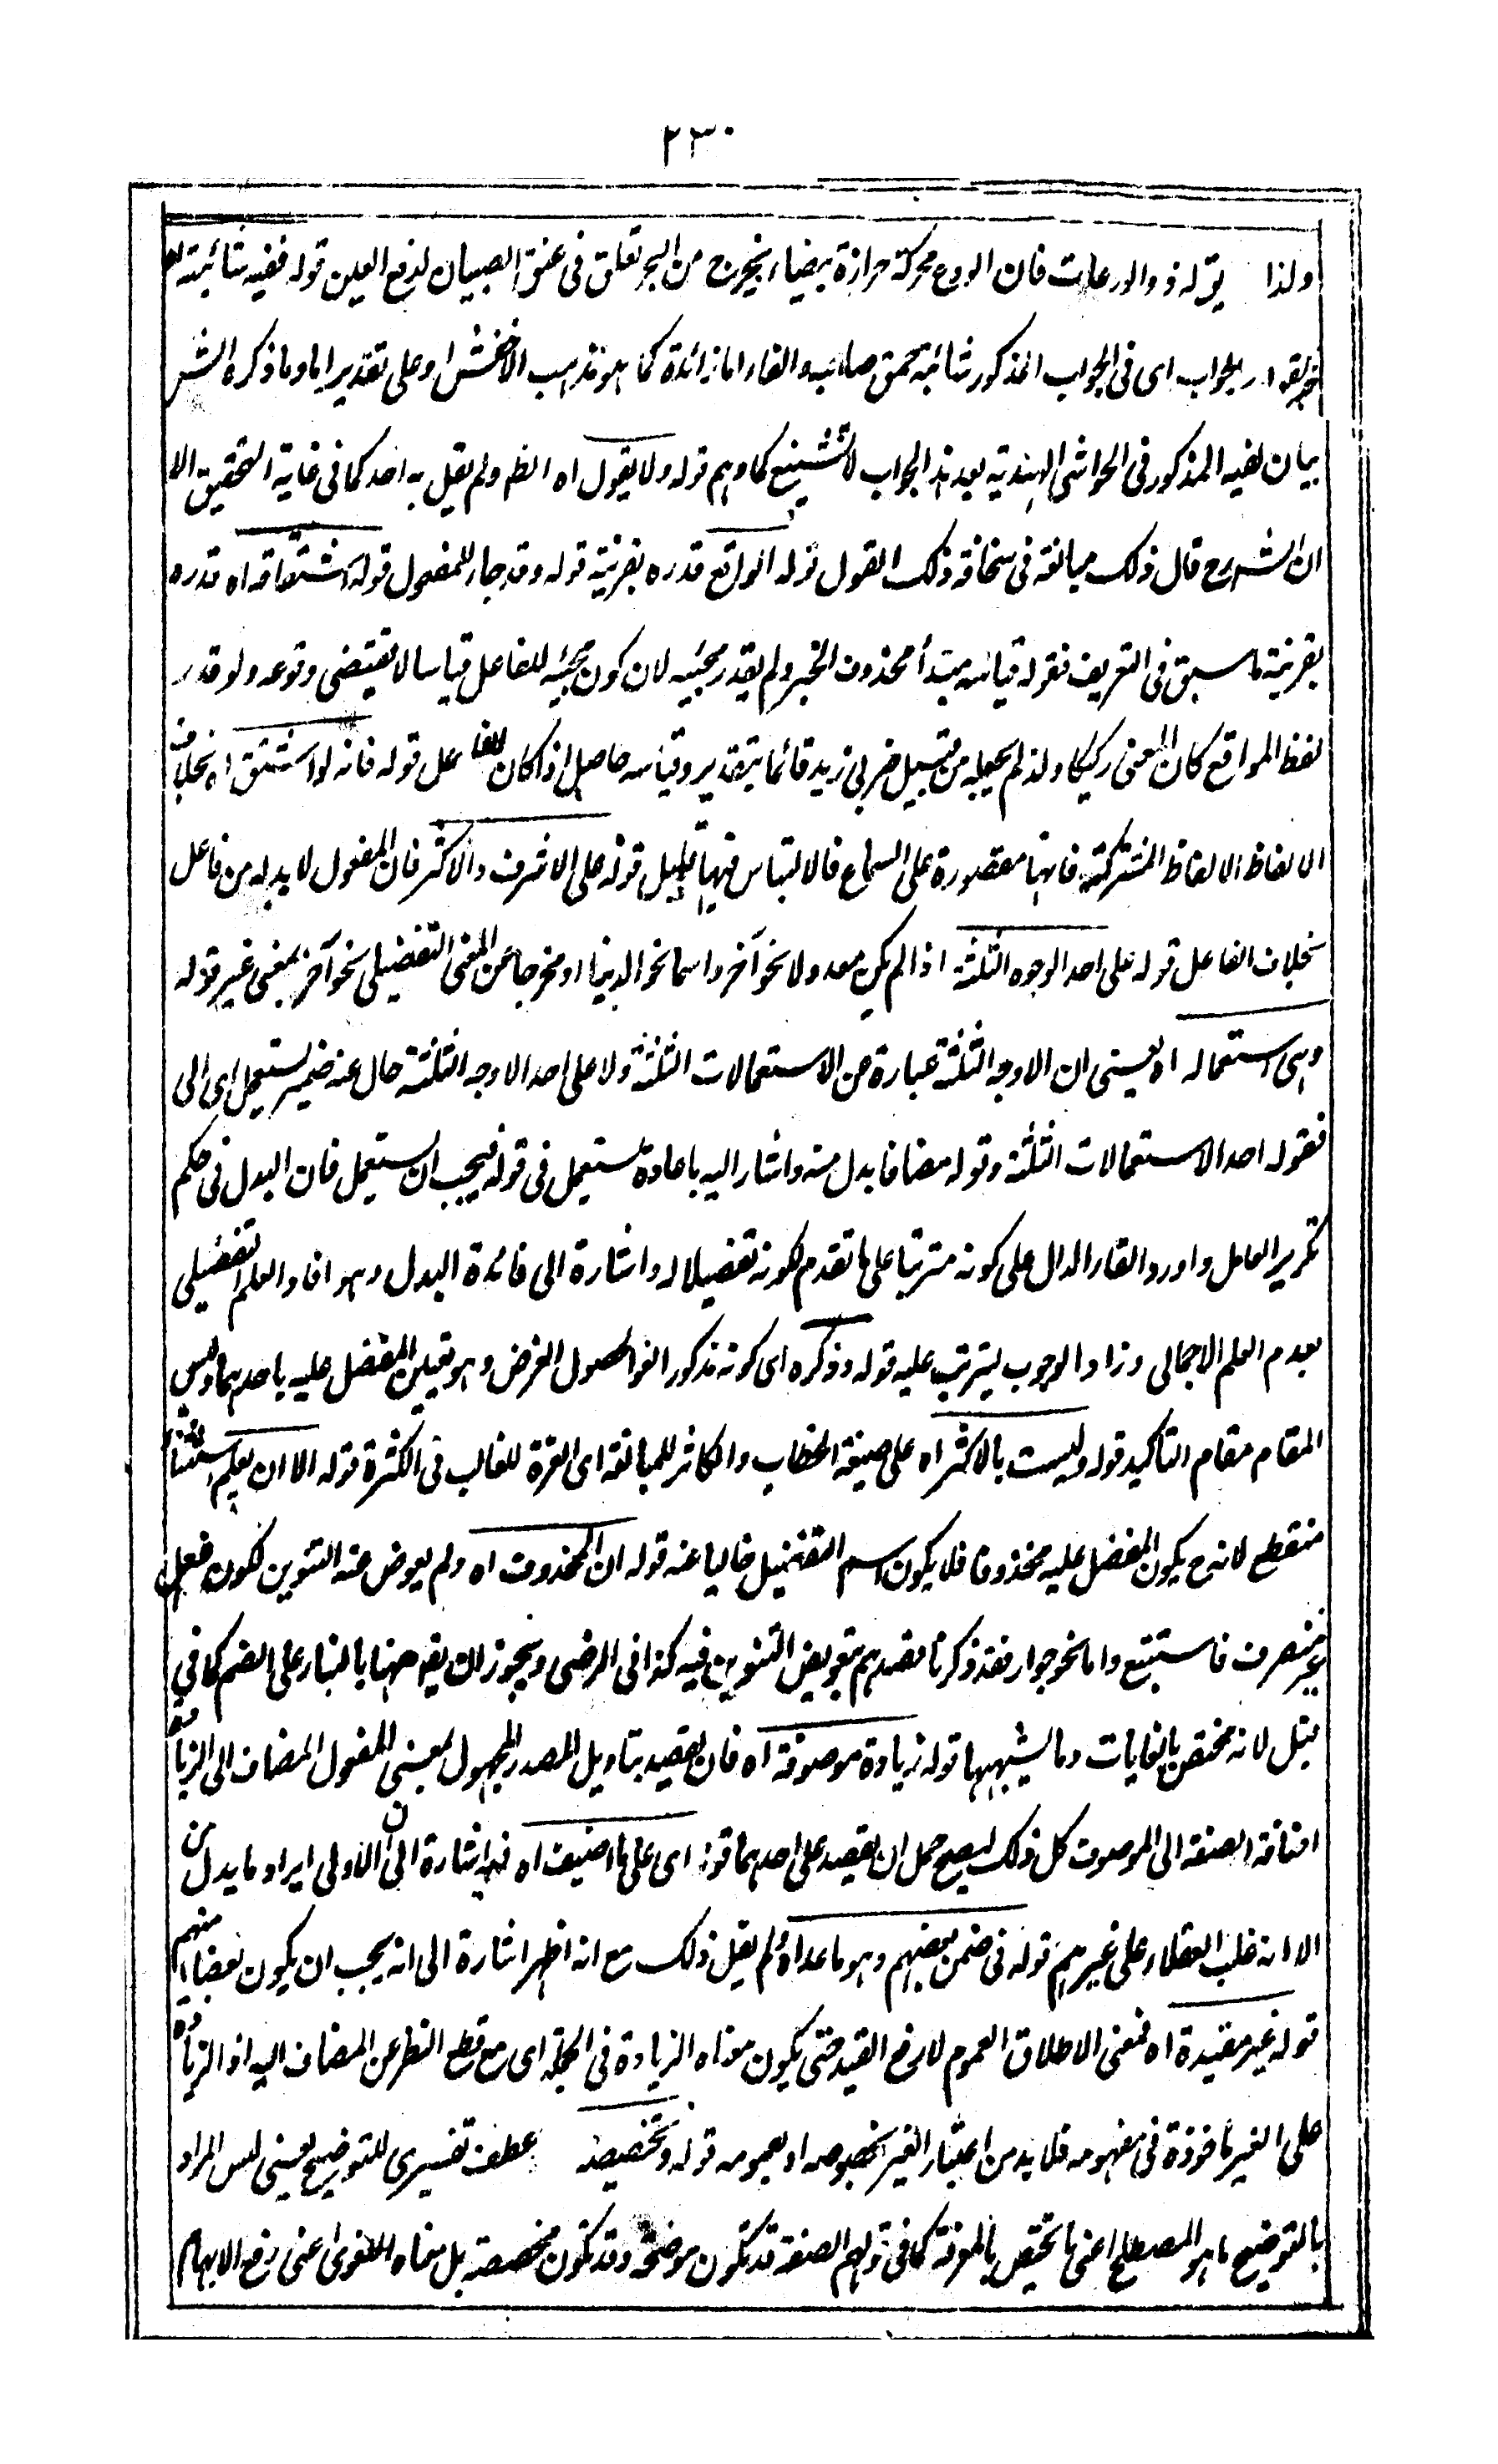 ٢٣٠
ولذا يق له ذو الورعات فان الودع محركة حرازة بيضاء يخرج من البحر تعلق فى عنق الصبيان لدفع العين قوله ففيه شائبة
الجواب اى فى الجواب المذكور شائبة حمق صاحبه والفاء اما زائدة كما هو مذهب الاخفش او على تقدير اما وما ذكره الش
بيان لفيه المذكور فى الحواشى الهندية بعد هذا الجواب لا تشنيع كما وهم قوله ولا يقول اه الظ ولم يقل به احد كما فى غاية التحقيق الا
ان الشرح قال ذلك مبالغة فى سخافة ذلك القول قوله الواقع قدره بقرينة قوله وقد جاء للمفعول قوله اشتقاقه اه قدره
بقرينة ما سبق فى التعريف فقوله قياسه مبتدأ محذوف الخبر ولم يقدر مجيئه لان كون مجيئه للفاعل قياسا لا يقتضى وقوعه ولو قدر
لفظ المواقع كان المعنى ركيكا ولذا لم يجعله من قبيل ضربى زيد قائما بتقدير وقياسه حاصل اذا كان للفاعل قوله فانه لو اشتق اه بخلاف
الالفاظ الالفاظ المشتركة فانها مقصورة على السماع فالالتباس فيها قليل قوله على الاشرف والاكثر فان المفعول لا بد له من فاعل
بخلاف الفاعل قوله على احد الوجوه الثلثة اذا لم يكن معدولا نحو آخر واسما نحو الدنيا او مخرجا عن المعنى التفضيلى نحو آخر بمعنى غير قوله
وهى استعماله اه يعنى ان الاوجه الثلثة عبارة عن الاستعمالات الثلثة ولا على احد الاوجه الثلثة حال عنه ضمير يستعمل اى الى
فقوله احد الاستعمالات الثلثة وقوله مضافا بدل منه واشار اليه باعادة يستعمل فى قوله فيجب ان يستعمل فان البدل فى حكم
تكرير العامل واورد الفاء الدال على كونه مترتبا على ما تقدم لكونه تفصيلا له واشارة الى فائدة البدل وهو افاد العلم التفضيلى
بعدم العلم الاجمالى وزاد الوجوب ليترتب عليه قوله وذكره اى كونه مذكورا لغوا لحصول الغرض وهو تعيين المفضل عليه باحدهما وليس
المقام مقام التاكيد قوله وليست بالاكثر اه على صيغة الخطاب والكاثر للمبالغة اى العزة للغالب فى الكثرة قوله الا ان يعلم استثناء
منقطع لانه ح يكون المفضل عليه محذوفا فلا يكون اسم التفضيل خاليا عنه قوله ان المحذوف اه ولم يعوض عنه التنوين لكون افعل
غير منصرف فاستبتع واما نحو جوار فقد ذكرنا مقصدهم بتعويض التنوين فيه كذا فى الرضى ويجوز ان يق ههنا بالبناء على الضم كما فى
قبل لانه مختص بالغايات وما يشبهها قوله زيادة موصوفة اه فان يقصد بتاويل المصدر المجهول بمعنى المفعول المضاف الى الزيادة
اضافة الصفة الى الموصوف كل ذلك ليصح حمل ان يقصد على احدهما قوله اى على ما اضيف اه فيه اشارة الى ان الاولى ايراد ما بدل من
الا انه غلب العقلاء على غيرهم قوله فى ضمن بعضهم وهو ما عداه لم يقل ذلك مع انه اظهر اشارة الى انه يجب ان يكون بعضا منهم
قوله غير مقيدة اه فمعنى الاطلاق العموم لا رفع القيد حتى يكون معناه الزيادة فى الجملة اى مع قطع النظر عن المضاف اليه اذ الزيادة
على الغير ماخوذة فى مفهومه فلا بد من اعتبار الغير بخصوصه او بعمومه قوله وتخصيصه عطف تفسيرى للتوضيح يعنى ليس المراد
بالتوضيح ما هو المصطلح اعنى ما تختص بالمعرفة كما فى قولهم الصفة قد تكون موضحة وقد تكون مخصصة بل معناه اللغوى اعنى رفع الابهام